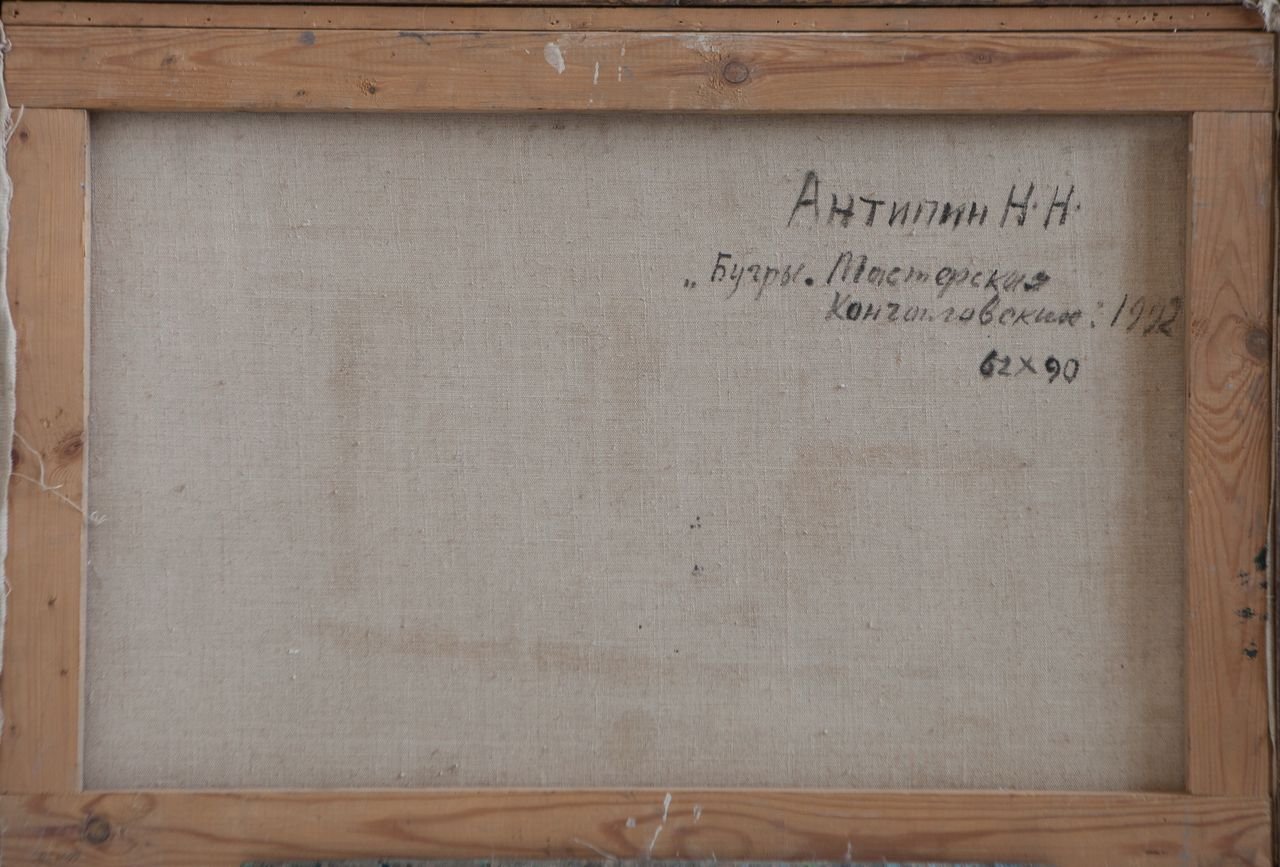 Антипин Н.Н.
„Бугры. Мастерская
Кончаловских." 1992
62х90